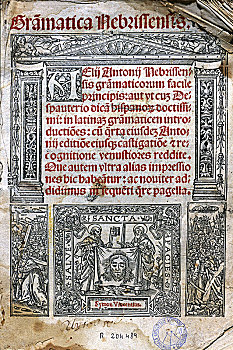 Grãmatica Nebrissensis.
Aelij Antonij Nebrissen
sis grãmaticorum facile
principis: aut ut cuz Des
pauterio dicã hispanoꝝ doctissi
mi: in latinaz grãmaticen intro
ductiões: cũ q̃rta eiusdez Anto
nij editiõe eiusqꝫ castigatiõe ⁊ re
cognitione venustiores reddite.
Que autem vltra alias impressio
nes hic habeantur: ac nouiter ad
didimus in sequẽti q̃re pagella.
SANCTA
R 204484